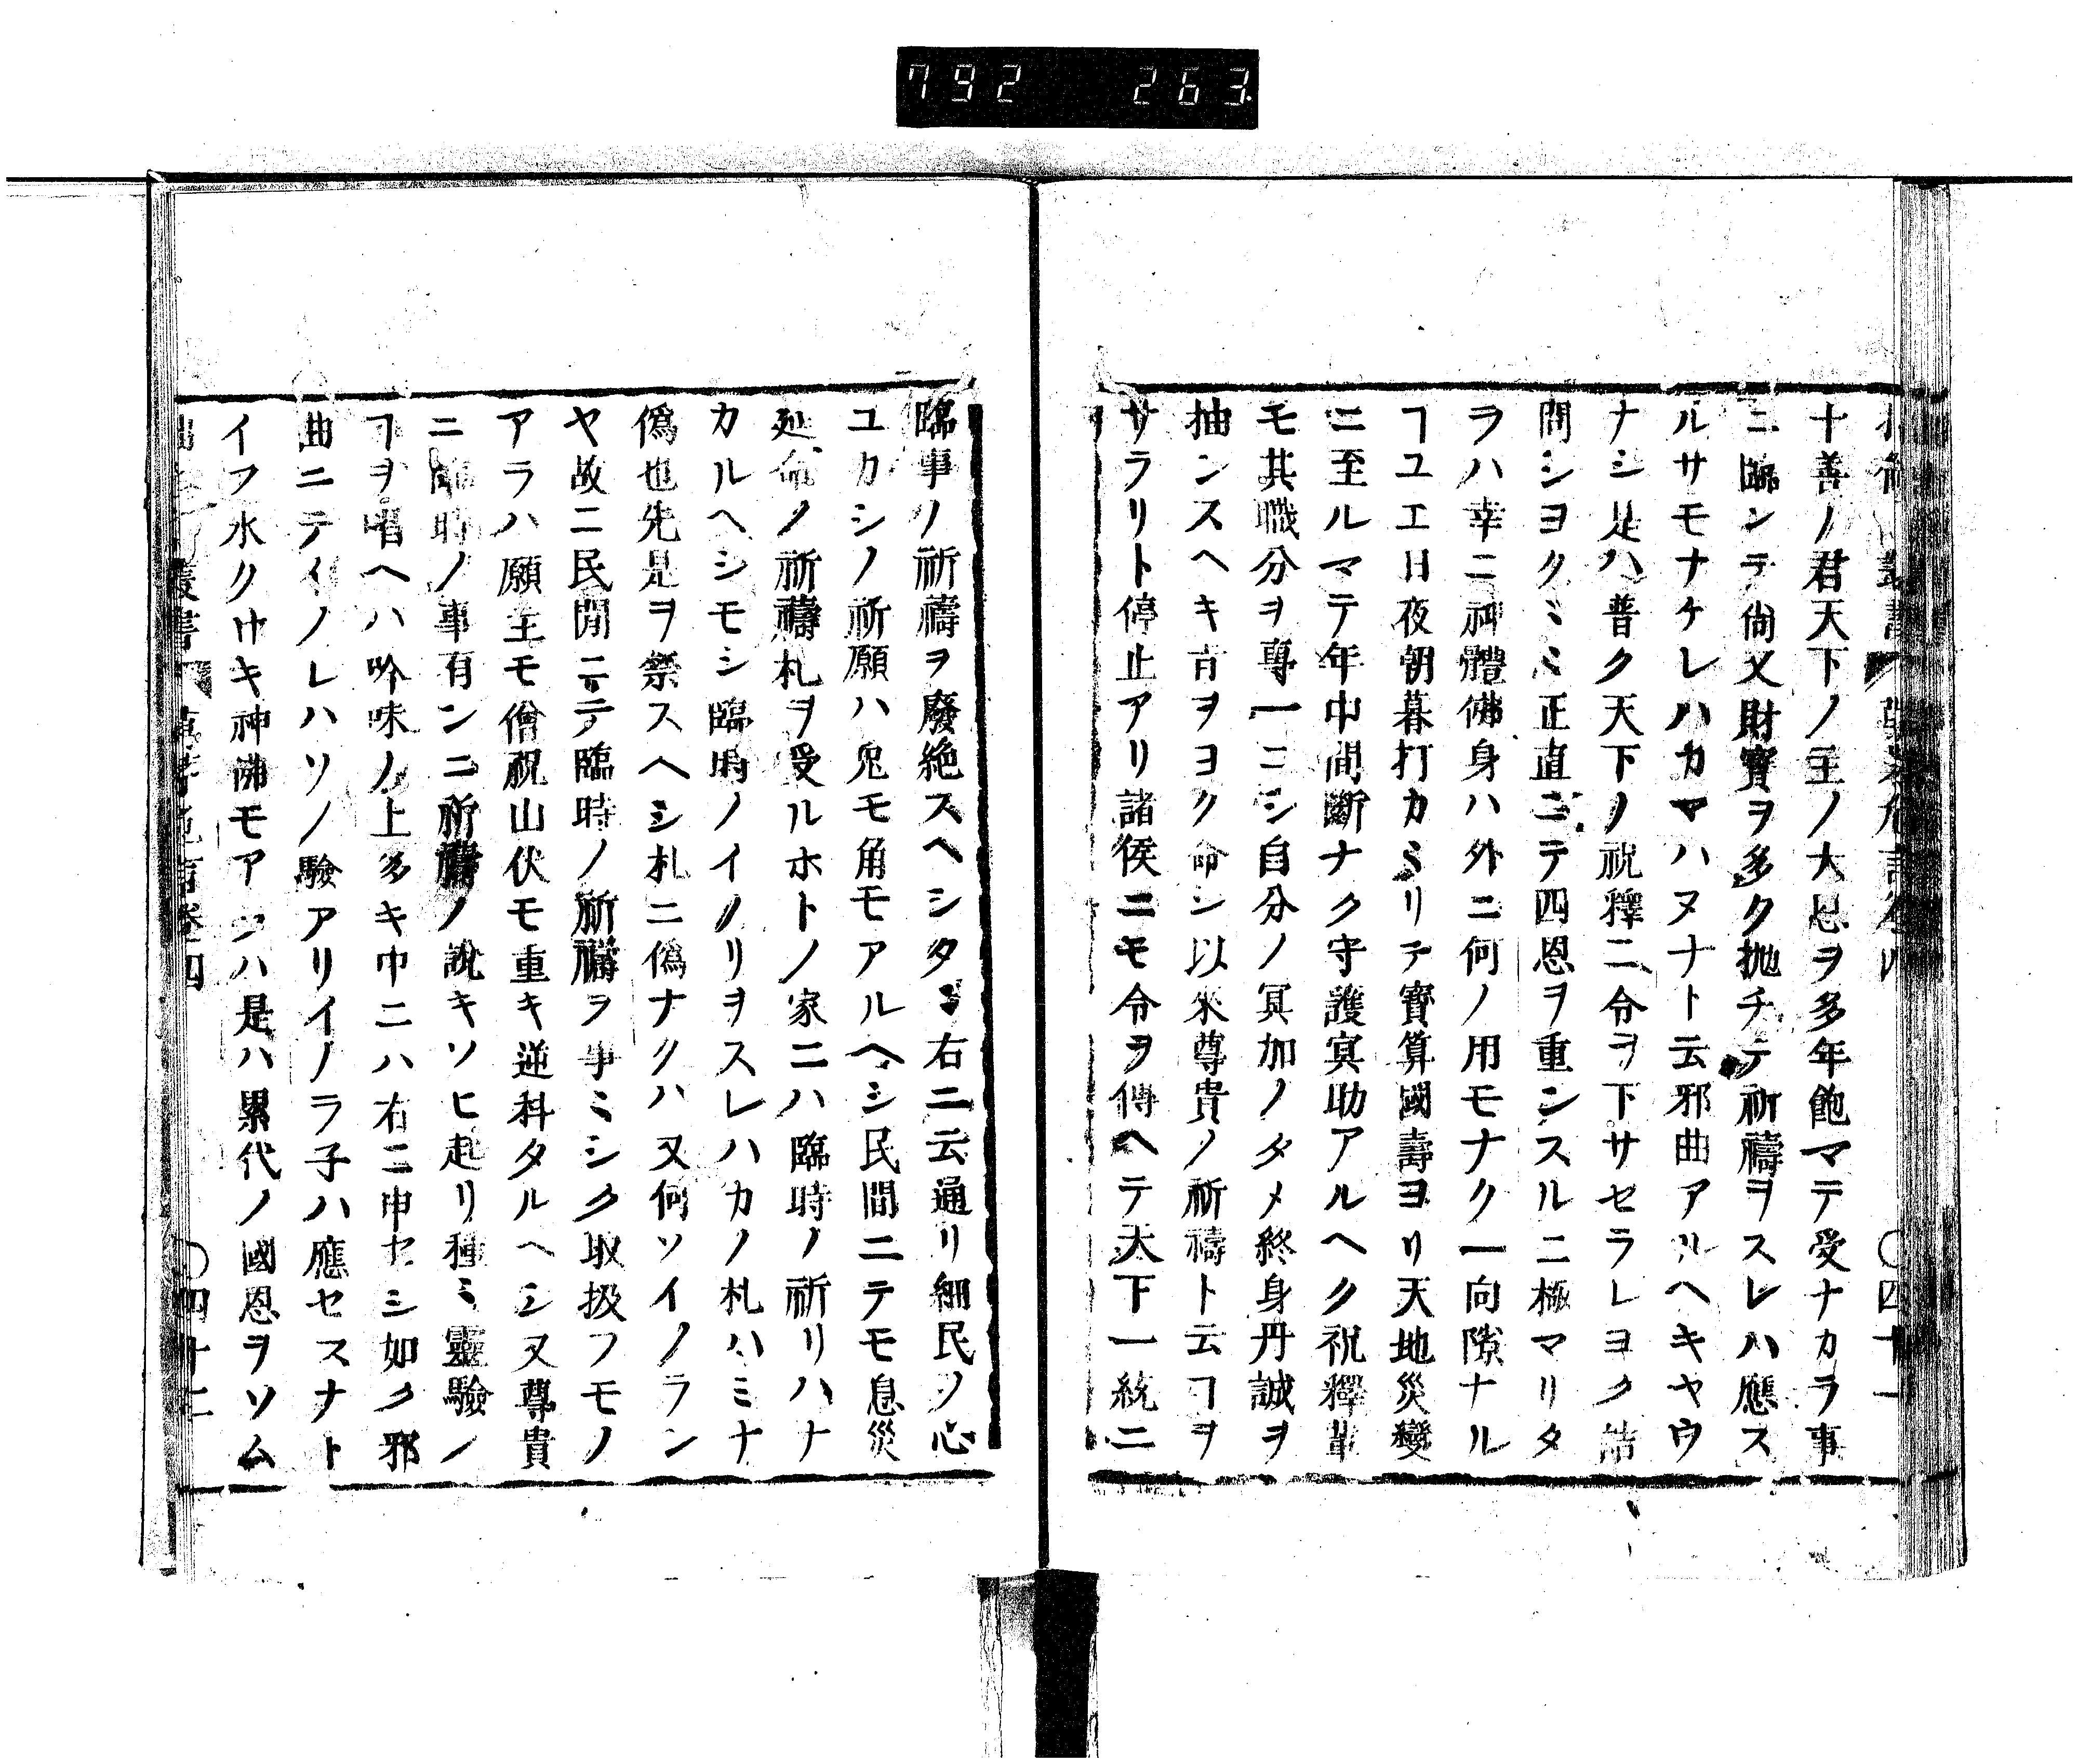 792 263
十善ノ君天下ノ主ノ大恩ヲ多年飽マテ受ナカラ事
ニ臨ンテ尙又財寶ヲ多ク抛チテ祈禱ヲスレハ應ス
ルサモナケレハカマハヌナト云邪曲アルヘキヤウ
ナシ是ハ普ク天下ノ祝釋ニ令ヲ下サセラレヨク詰
問シヨクミミ正直ニテ四恩ヲ重ンスルニ極マリタ
ラハ幸ニ神體佛身ハ外ニ何ノ用モナク一向隙ナル
ヿユエ日夜朝暮打カミリテ寶算國壽ヨリ天地災變
ニ至ルマテ年中間斷ナク守護冥助アルヘク祝釋輩
モ其職分ヲ專一ニシ自分ノ冥加ノタメ終身丹誠ヲ
抽ンスヘキ旨ヲヨク命シ以來尊貴ノ祈禱ト云ヿヲ
サラリト停止アリ諸侯ニモ令ヲ傳ヘテ天下一統ニ
臨事ノ祈禱ヲ廢絶スヘシタヾ右ニ云通リ細民ノ心
ユカシノ祈願ハ鬼モ角モアルヘシ民間ニテモ息災
延命ノ祈禱札ヲ受ルホトノ家ニハ臨時ノ祈リハナ
カルヘシモシ臨時ノイノリヲスレハカノ札ハミナ
僞也先是ヲ祭スヘシ札ニ僞ナクハ又何ソイノラン
ヤ故ニ民間ニテ臨時ノ祈禱ヲ事ミシク取扱フモノ
アラハ願主モ僧祝山伏モ重キ逆科タルヘシ又尊貴
ニ臨時ノ事有ンニ祈禱ノ說キソヒ起リ種ミ靈驗ノ
ヿヲ唱ヘハ吟味ノ上多キ中ニハ右ニ申セシ如ク邪
曲ニテイノレハソノ驗アリイノラ子ハ應セスナト
イフ水クサキ神佛モアラハ是ハ累代ノ國恩ヲソム
叢書 草茅危言卷四 〇四十二